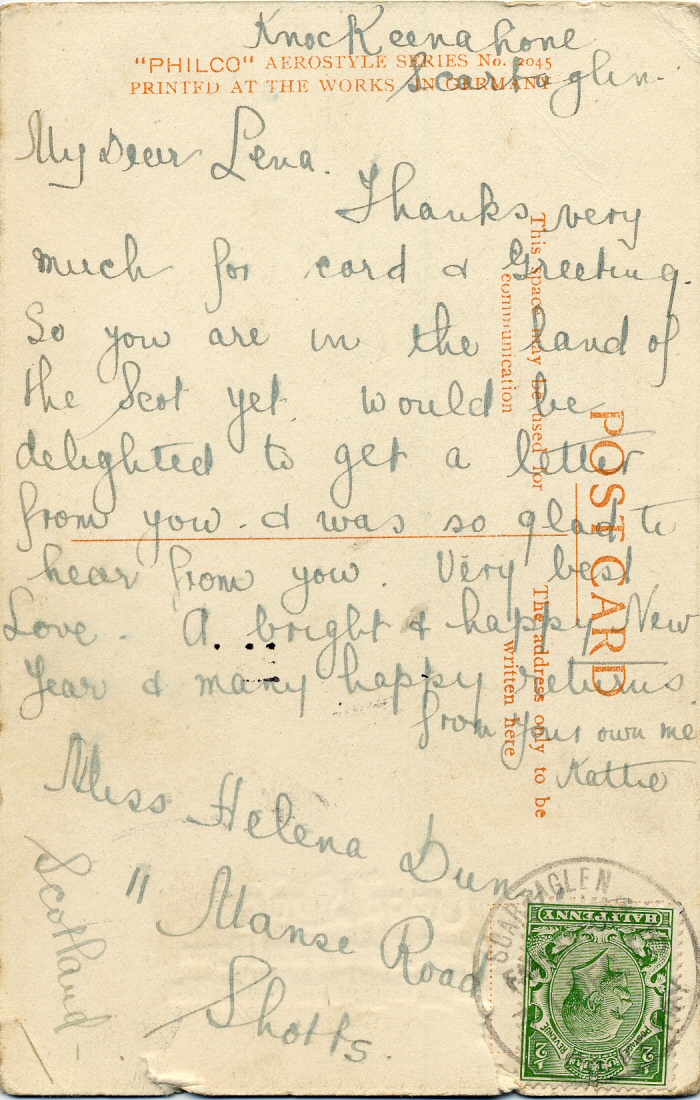 Knockeenahone
"PHILCO" AEROSTYLE SERIES No. 2045
Scartaglin.
PRINTED AT THE WORKS IN GERMANY
My Dear Lena.
Thanks very
much for card & Greeting.
So you are in the land of
the Scot yet. would be
delighted to get a letter
from you. & was so glad to
hear from you. Very best
Love. A bright & happy New
Year & many happy returns
from your own me
Kattie
POST CARD
This space may be used for
communication
The address only to be
written here
Miss Helena Dun
11 Manse Road
Shotts.
Scotland
SCARTAGLEN
HALFPENNY
POSTAGE
REVENUE
1/2
1/2